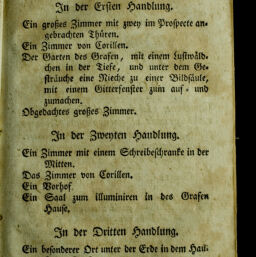 In der Ersten Handlung.
Ein großes Zimmer mit zwey im Prospecte an-
gebrachten Thüren.
Ein Zimmer von Corillen.
Der Garten des Grafen, mit einem Lustwäld-
chen in der Tiefe, und unter dem Ge-
sträuche eine Nieche zu einer Bildsäule,
mit einem Gitterfenster zum auf- und
zumachen.
Obgedachtes großes Zimmer.
In der Zweyten Handlung.
Ein Zimmer mit einem Schreibeschranke in der
Mitten.
Das Zimmer von Corillen.
Ein Vorhof.
Ein Saal zum illuminiren in des Grafen
Hause.
In der Dritten Handlung.
Ein besonderer Ort unter der Erde in dem Hau-